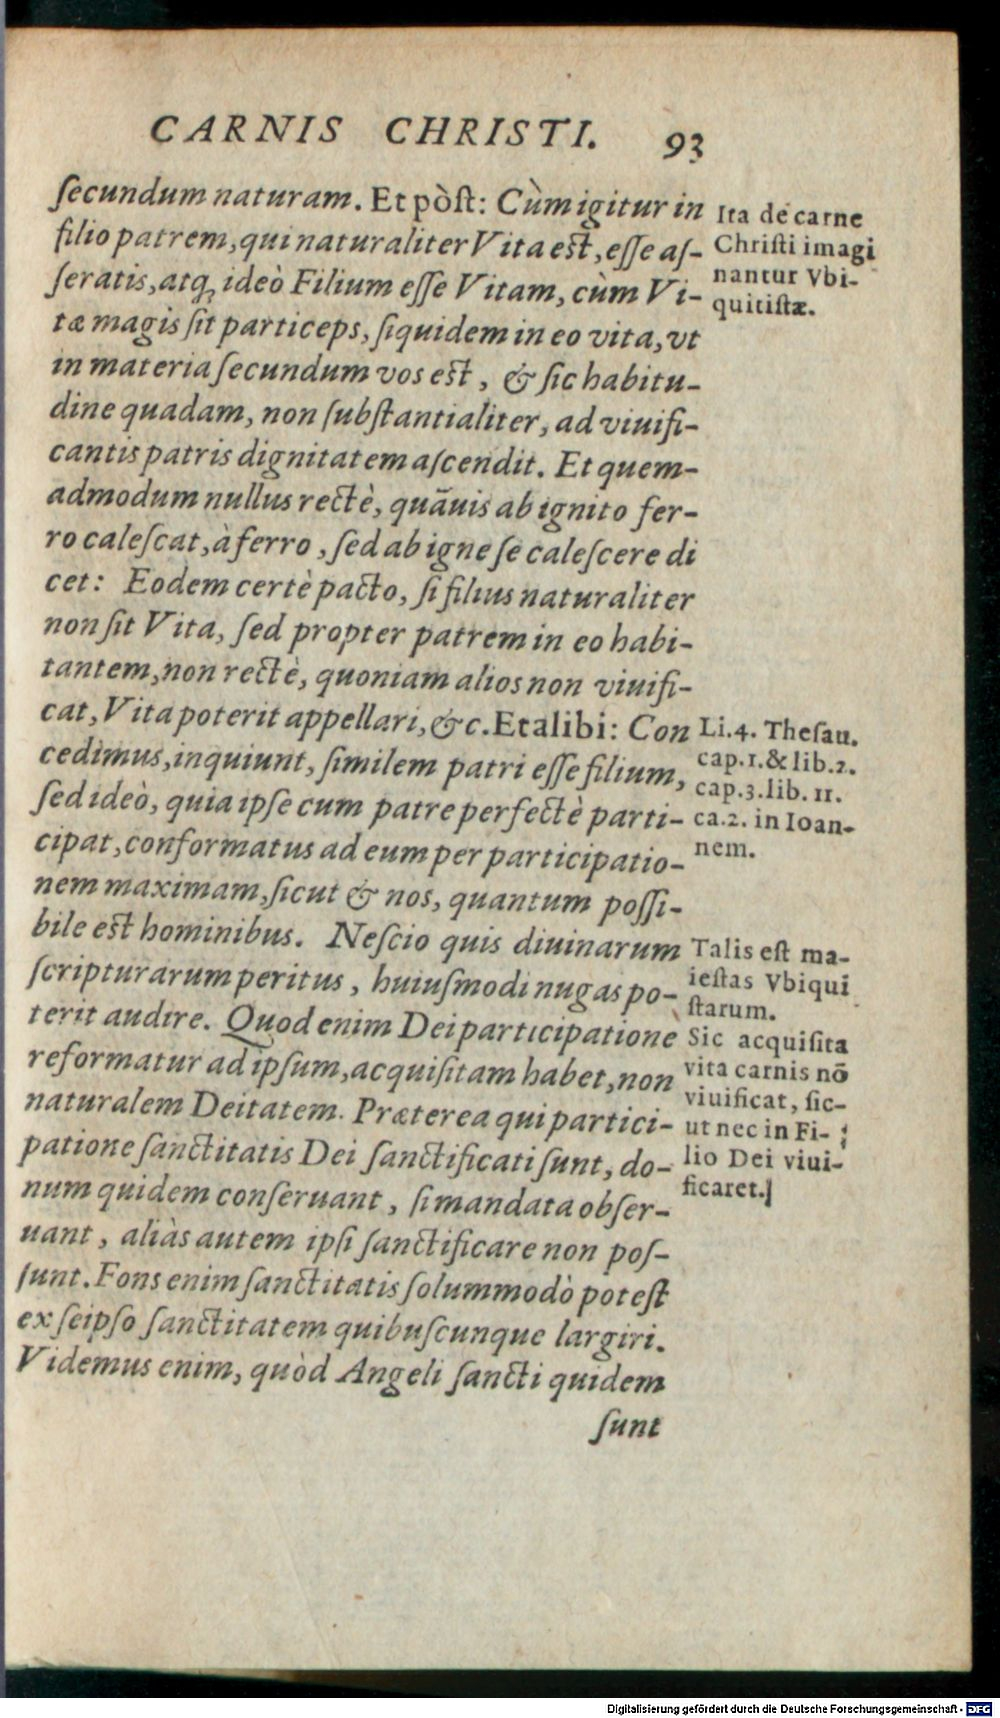 CARNIS CHRISTI. 93
ſecundum naturam. Et pòſt: Cùm igitur in
filio patrem, qui naturaliter Vita eſt, eſſe aſ-
ſeratis, atq; ideò Filium eſſe Vitam, cùm Vi-
tæ magis ſit particeps, ſiquidem in eo vita, vt
in materia ſecundum vos eſt, & ſic habitu-
dine quadam, non ſubſtantialiter, ad viuifi-
cantis patris dignitatem aſcendit. Et quem-
admodum nullus rectè, quāuis ab ignito fer-
ro caleſcat, à ferro, ſed ab igne ſe caleſcere di
cet: Eodem certè pacto, ſi filius naturaliter
non ſit Vita, ſed propter patrem in eo habi-
tantem, non rectè, quoniam alios non viuifi-
cat, Vita poterit appellari, &c. Et alibi: Con
cedimus, inquiunt, ſimilem patri eſſe filium,
ſed ideò, quia ipſe cum patre perfectè parti-
cipat, conformatus ad eum per participatio-
nem maximam, ſicut & nos, quantum poſſi-
bile eſt hominibus. Neſcio quis diuinarum
ſcripturarum peritus, huiuſmodi nugas po-
terit audire. Quod enim Dei participatione
reformatur ad ipſum, acquiſitam habet, non
naturalem Deitatem. Præterea qui partici-
patione ſanctitatis Dei ſanctificati ſunt, do-
num quidem conſeruant, ſi mandata obſer-
uant, aliàs autem ipſi ſanctificare non poſ-
ſunt. Fons enim ſanctitatis ſolummodò poteſt
ex ſeipſo ſanctitatem quibuſcunque largiri.
Videmus enim, quòd Angeli ſancti quidem
ſunt
Ita de carne
Chriſti imagi
nantur Vbi-
quitiſtæ.
Li.4. Theſau.
cap.1.& lib.2.
cap.3.lib.11.
ca.2. in Ioan-
nem.
Talis eſt ma-
ieſtas Vbiqui
ſtarum.
Sic acquiſita
vita carnis nō
viuificat, ſic-
ut nec in Fi-
lio Dei viui-
ficaret.
Digitalisierung gefördert durch die Deutsche Forschungsgemeinschaft - DFG